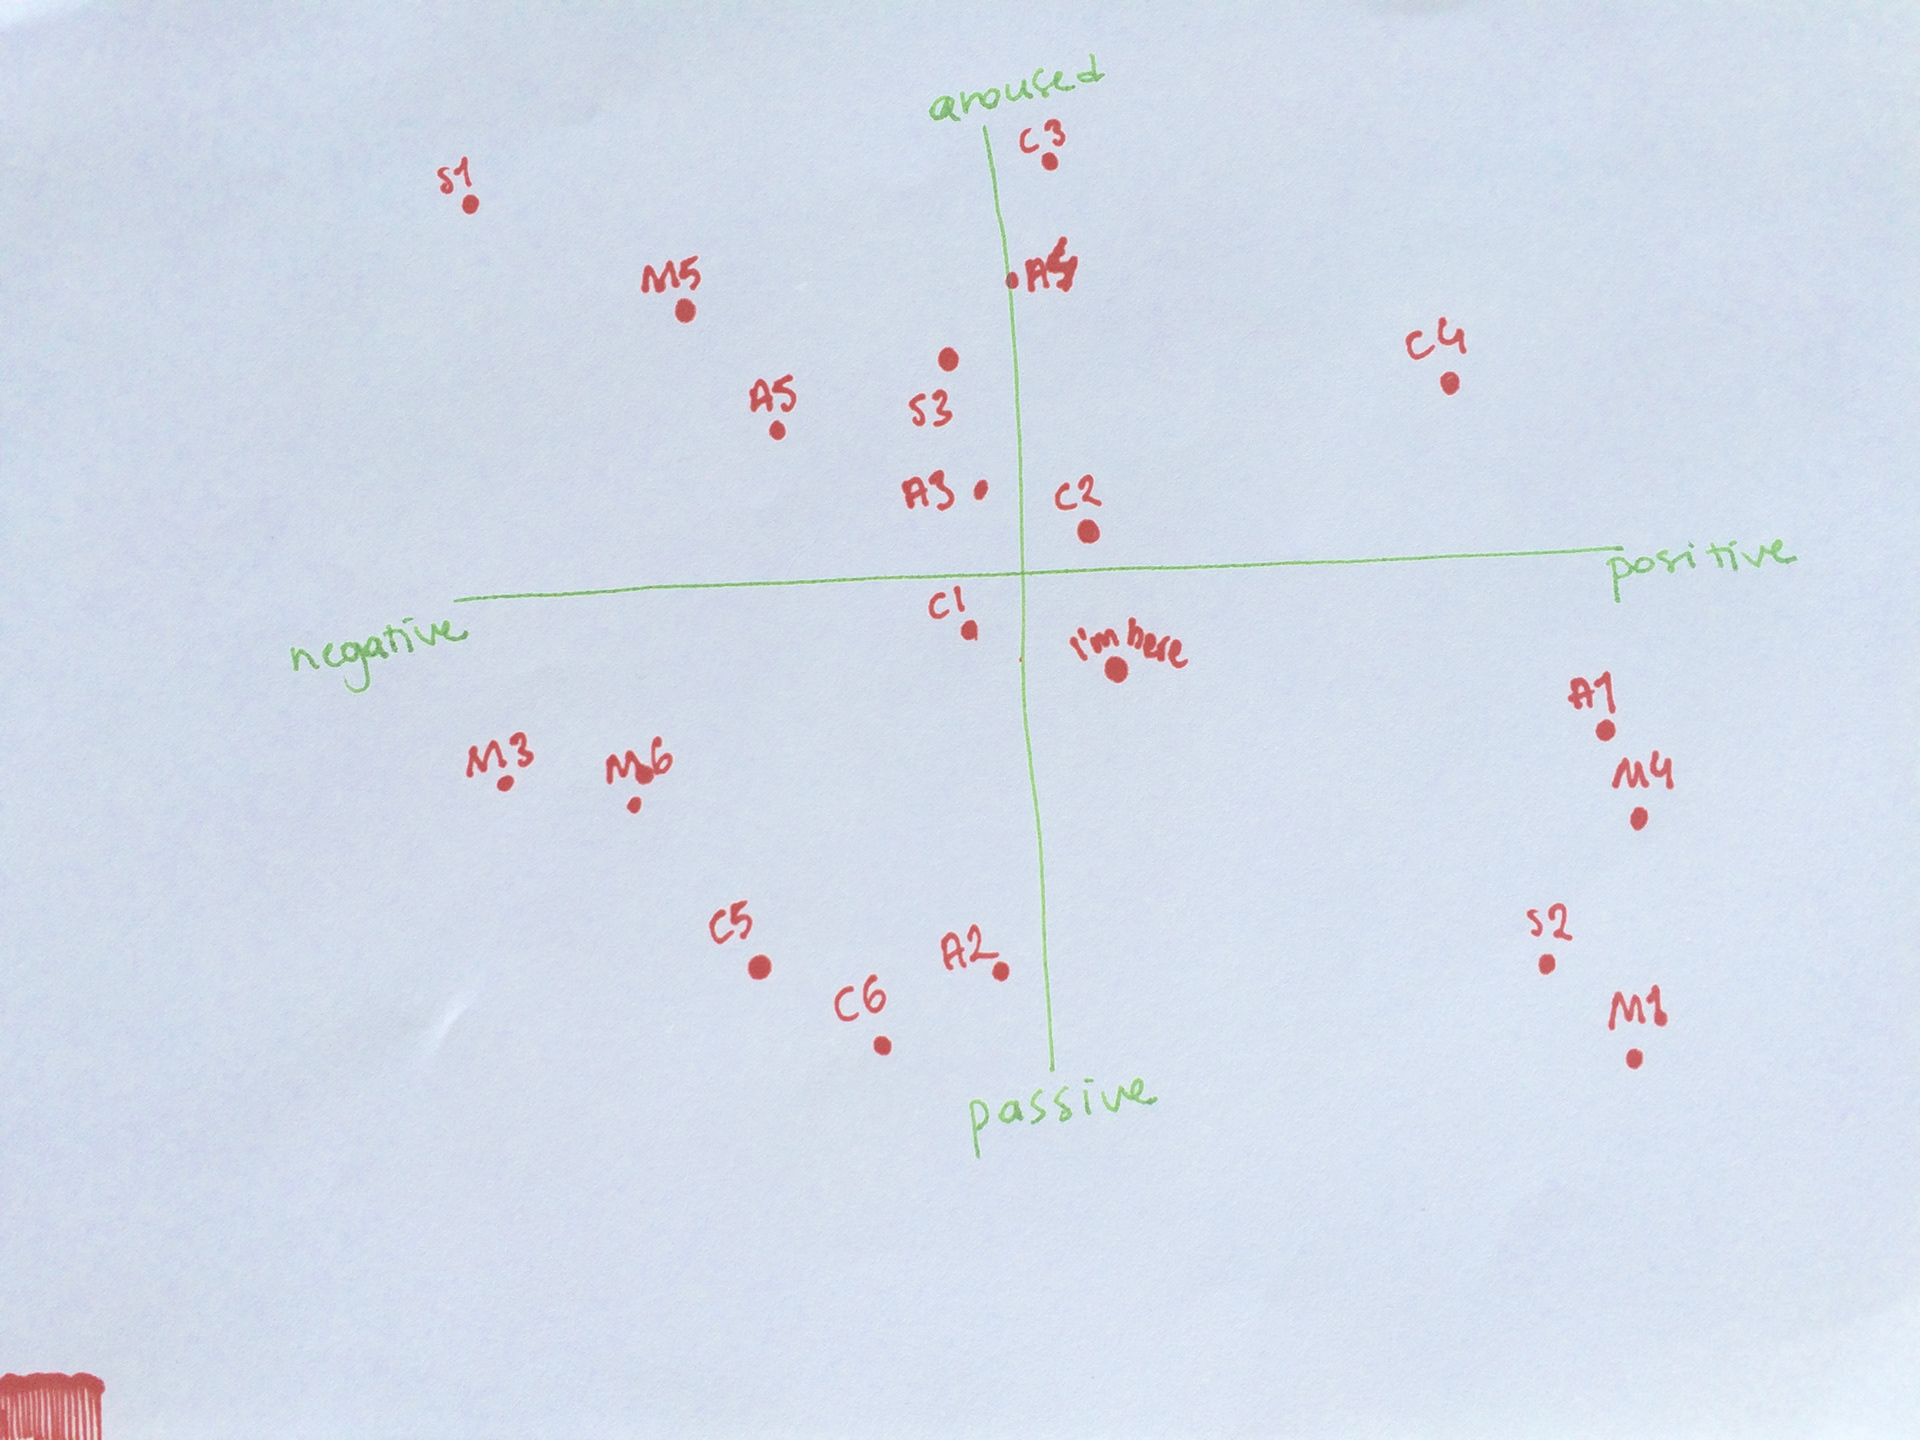 aroused
C3
S1
M5
C4
A5
S3
A3
C2
positive
C1
negative
I'm here
A1
M3
M6
M4
C5
S2
A2
C6
M1
passive